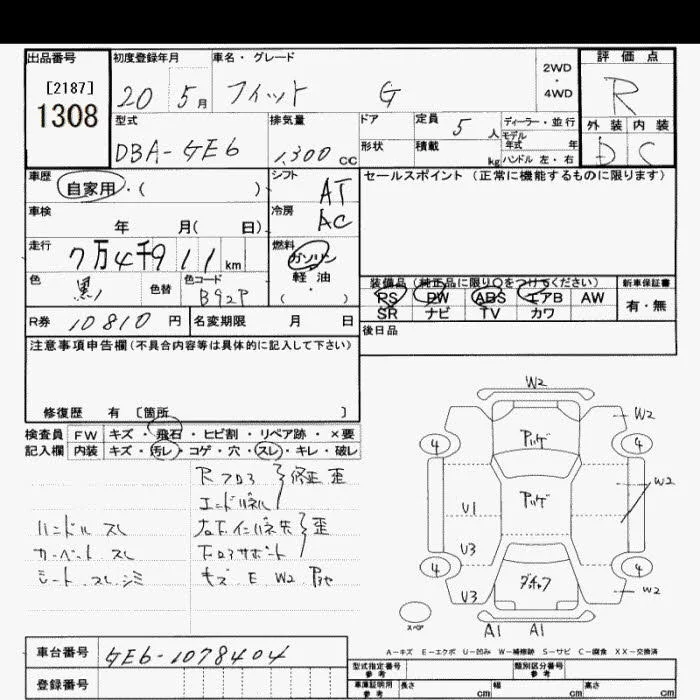 出品番号
[2187]
1308
初度登録年月
20 5月
車名・グレード
フィット G
2WD
・
4WD
評価点
R
外装 内装
D C
型式
DBA-GE6
排気量
1,300 CC
ドア
形状
定員 5 人
積載 kg
ディーラー・並行
モデル
年式 年
ハンドル 左・右
車歴
自家用・( )
シフト
AT
セールスポイント（正常に機能するものに限ります）
車検
年 月( 日)
冷房
AC
走行
7万4千911km
燃料
ガソリン
軽油
( ・ )
色
黒
色替
色コード
B92P
装備品（純正品に限り○をつけてください）
PS PW ABS エアB AW
SR ナビ TV カワ
新車保証書
有・無
R券 10810 円
名変期限 月 日
後日品
注意事項申告欄(不具合内容等は具体的に記入して下さい)
修復歴 有 〔箇所 〕
検査員 FW キズ・飛石・ヒビ割・リペア跡・×要
記入欄 内装 キズ・汚レ・コゲ・穴・スレ・キレ・破レ
Rフロア 修正 歪
エンドパネル
ハンドル スレ
カーペット スレ
シート スレ シミ
キズ E W2
W2
W2
4
4
W2
U1
U3
4
4
U3
W2
スペア
A1 A1
A-キズ E-エクボ U-凹み W-補修跡 S-サビ C-腐食 XX-交換済
車台番号 GE6-1078404
登録番号
型式指定番号
参考
類別区分番号
参考
車庫証明用
参考
長さ cm
幅 cm
高さ cm